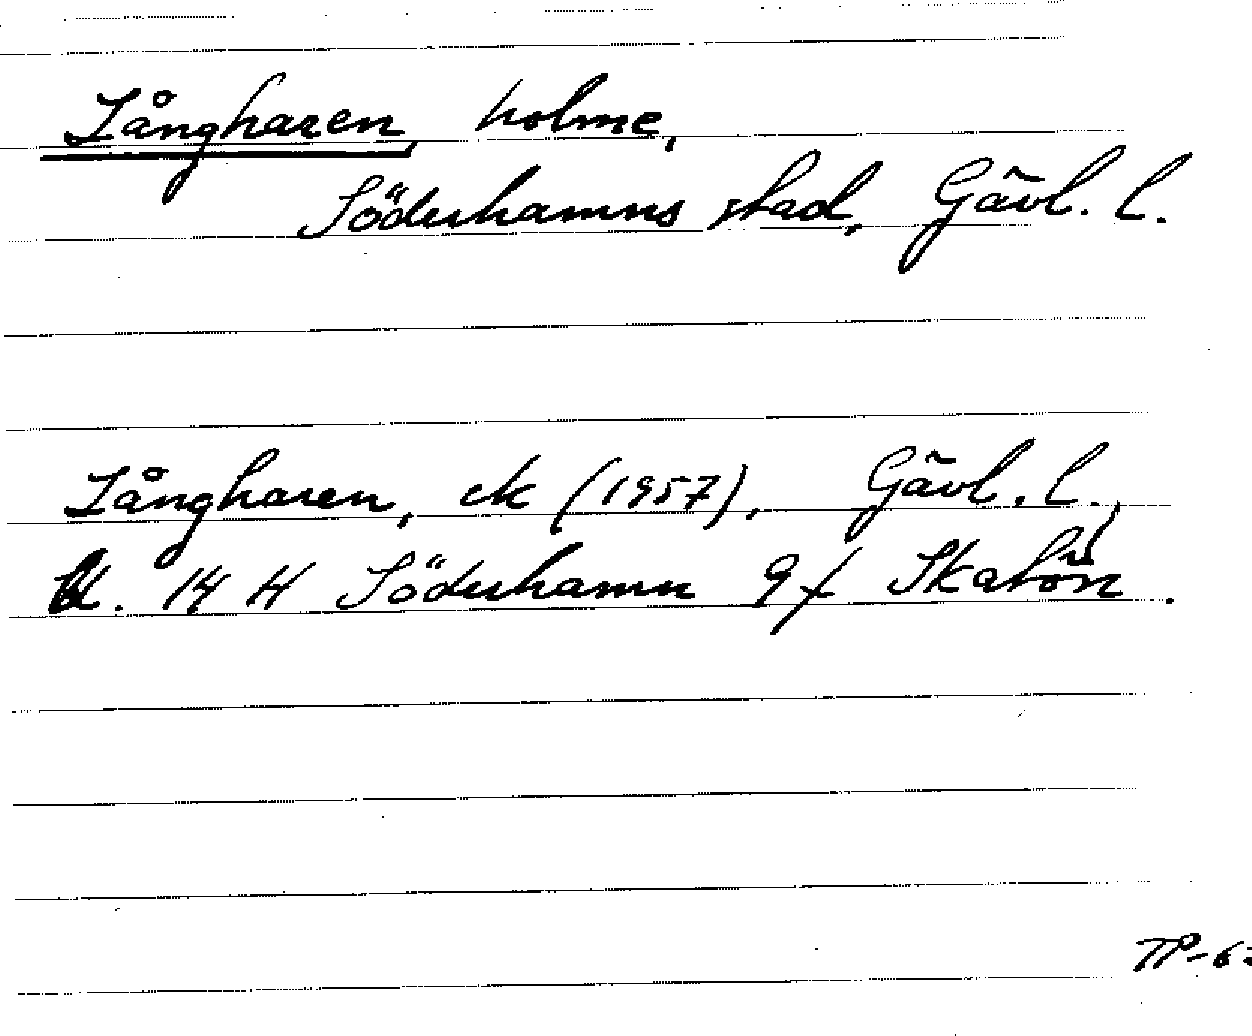 Långharen, holme,
Söderhamns stad, Gävl. l.
Långharen, ek (1957), Gävl. l.,
bl. 14 H Söderhamn 9f Skatön.